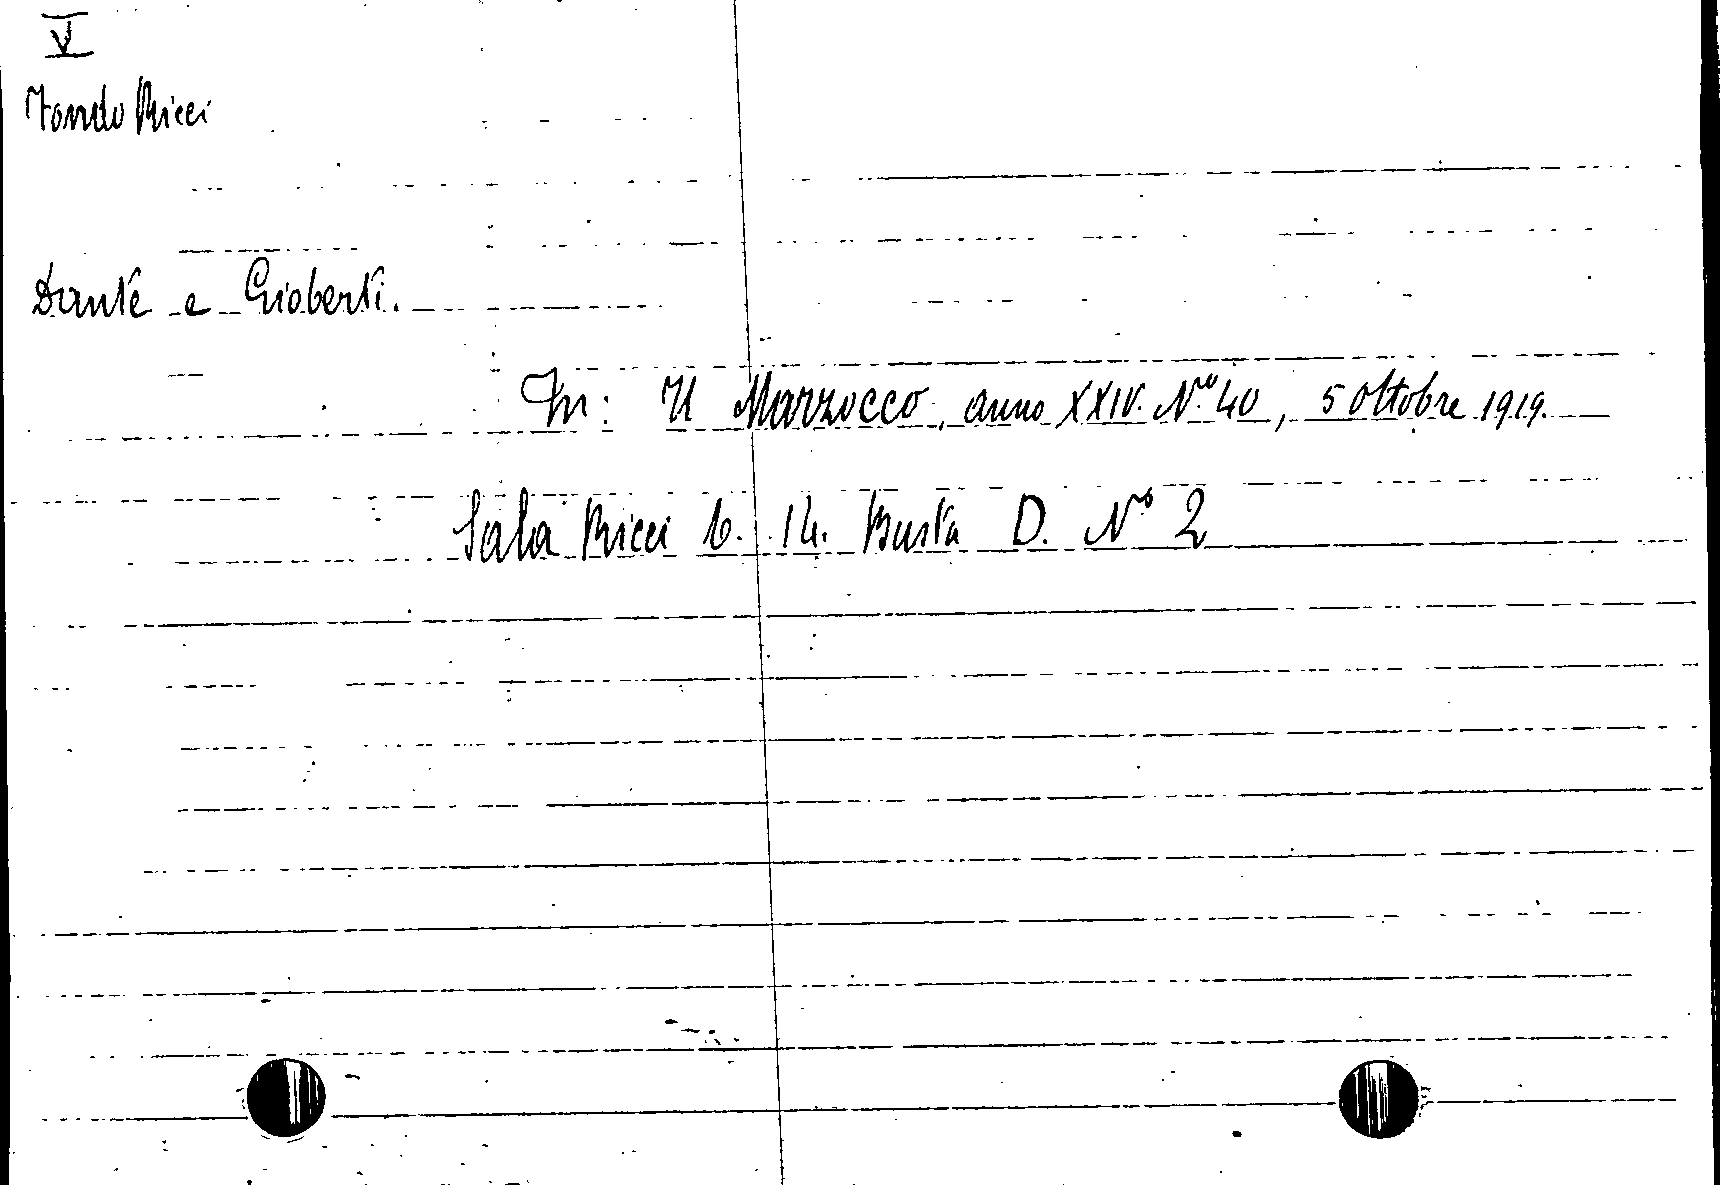 V
Fondo Ricci
Dante e Gioberti.
In: Il Marzocco, anno XXIV. N.º 40, 5 Ottobre 1919.
Sala Ricci 6. 14. Busta D. Nº 2